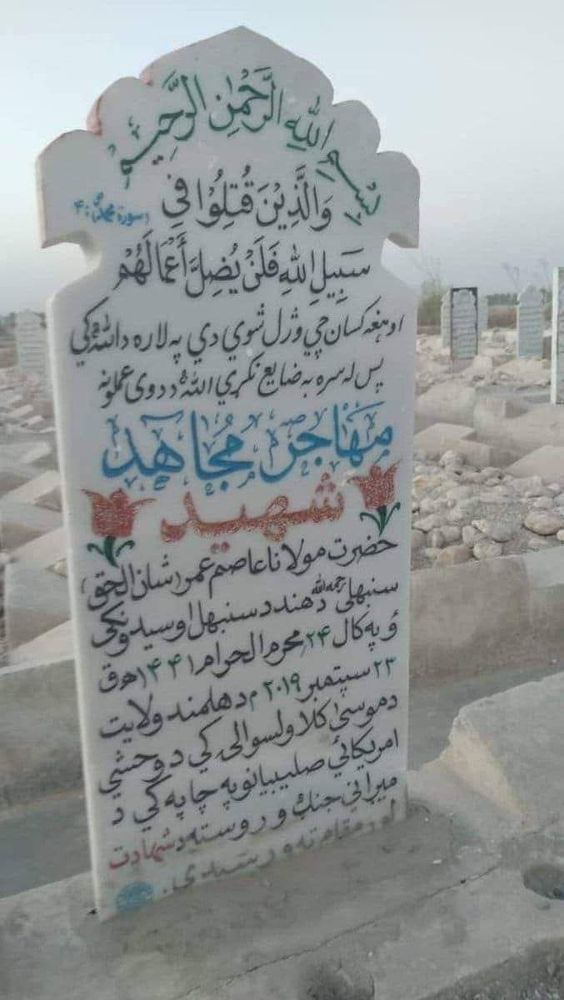 بِسْمِ اللهِ الرَّحْمٰنِ الرَّحِيْمِ
وَالَّذِيْنَ قُتِلُوْا فِي
(سورة محمد: ۴)
سَبِيلِ اللهِ فَلَنْ يُضِلَّ أَعْمَالَهُمْ
او هغه کسان چي وژل شوي دي په لاره د الله کي
پس له سره به ضايع نکړي الله د دوی عملونه
مهاجر مُجاهِد
شهید
حضرت مولانا عاصم عمر (شان الحق)
سنبهلي رحمه الله د هند د سنبهل اوسيدونکی
ؤ په کال ۲۴ محرم الحرام ۱۴۴۱ هـ ق
۲۳ سپتمبر ۲۰۱۹ م د هلمند ولايت
د موسیٰ کلا ولسوالی کي د وحشي
امريکائي صليبيانو په چاپه کي د
ميراني جنګ وروسته د شهادت
لوړ مقام ته ورسیدی.